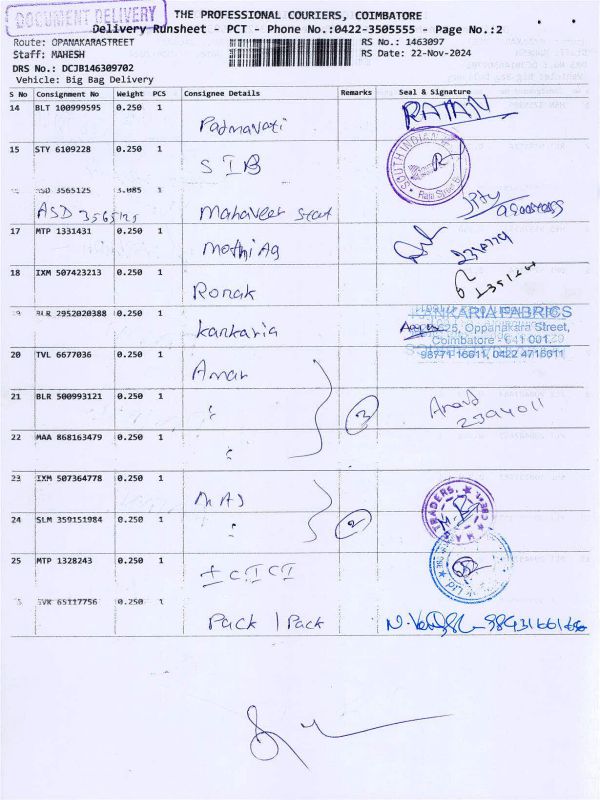 DOCUMENT DELIVERY
THE PROFESSIONAL COURIERS, COIMBATORE
Delivery Runsheet - PCT - Phone No.:0422-3505555 - Page No.:2
Route: OPANAKARASTREET RS No.: 1463097
Staff: MAHESH RS Date: 22-Nov-2024
DRS No.: DCJB146309702
Vehicle: Big Bag Delivery
S No Consignment No Weight PCS Consignee Details Remarks Seal & Signature
14 BLT 100999595 0.250 1
Padmavati RATAN
15 STY 6109228 0.250 1
SIB SOUTH INDIAN
ASD 3565125 1
ASD 3565125 Mahaveer
17 MTP 1331431 0.250 1
Mothi AG
18 IXM 507423213 0.250 1
Ronak
BLR 2952020388 0.250 1
Kankaria
KANKARIA FABRICS
625, Oppanakara Street,
Coimbatore - 641 001.
98771 16611, 0422 4716611
20 TVL 6677036 0.250 1
Amar
21 BLR 500993121 0.250 1
3 Anand
2394011
22 MAA 868163479 0.250 1
23 IXM 507364778 0.250 1
MAS TRADERS
24 SLM 359151984 0.250 1
2
25 MTP 1328243 0.250 1
ICICI
65117756 0.250 1
Pack 1 Pack